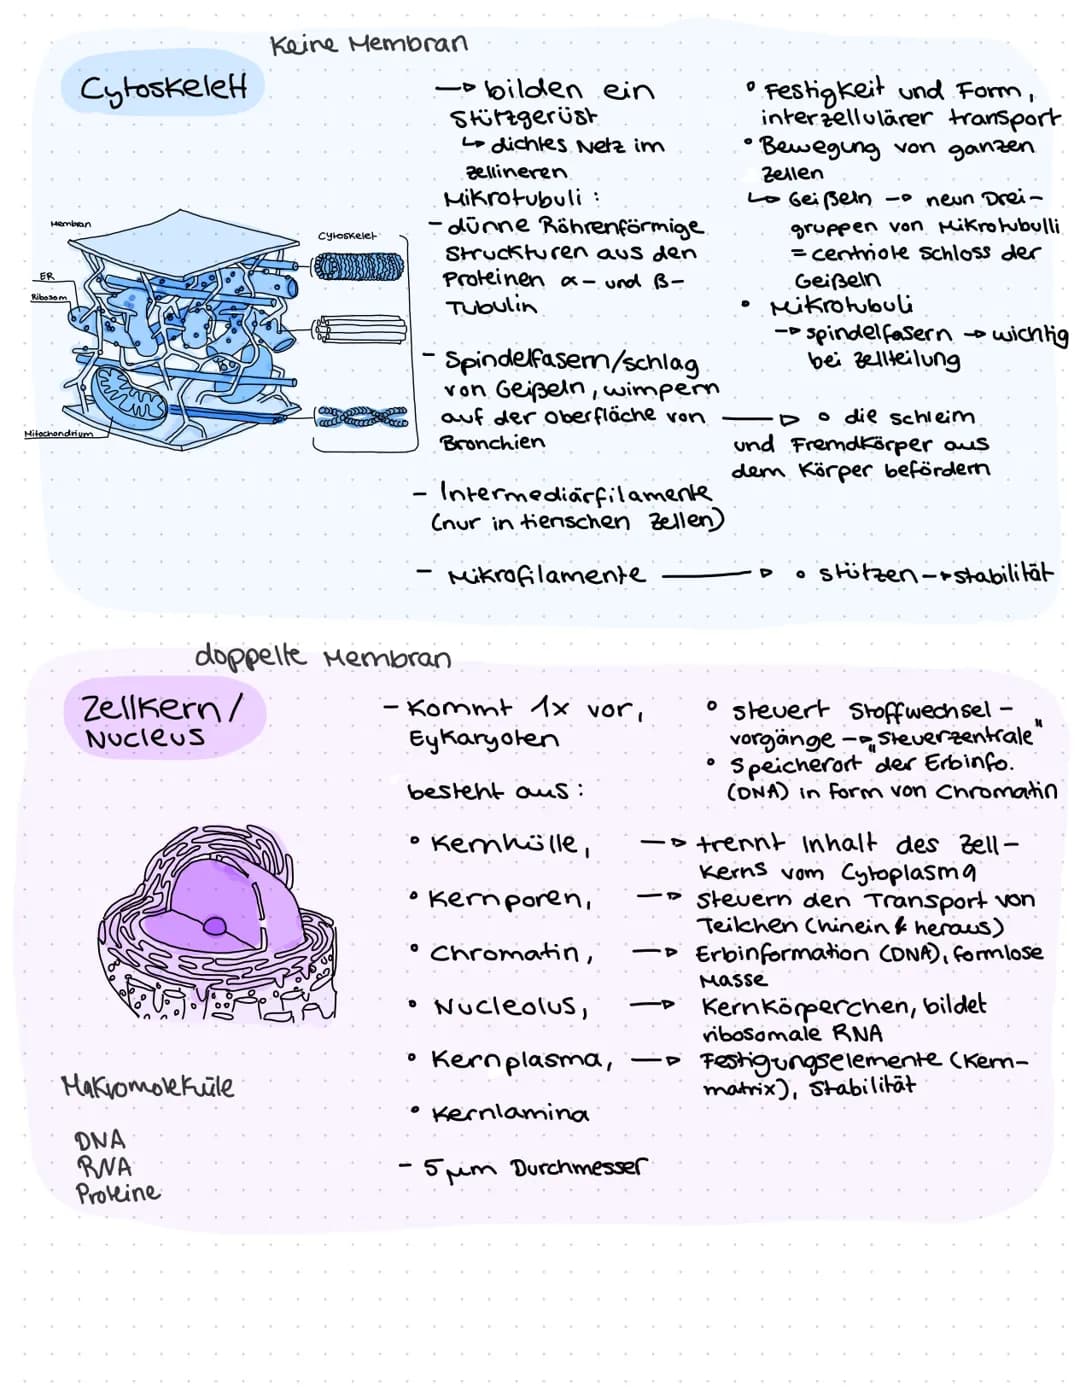 Keine Membran
Cytoskelett
Membran
ER
Ribosom
Mitochondrium
Cytoskelet
→ bilden ein
Stützgerüst
↳ dichtes Netz im
zellineren
Mikrotubuli :
- dünne Röhrenförmige
Struckturen aus den
Proteinen α- und β-
Tubulin
- Spindelfasern/schlag
von Geißeln, wimpern
auf der oberfläche von
Bronchien
- Intermediärfilamente
(nur in tierischen Zellen)
- Mikrofilamente
° Festigkeit und Form,
interzellulärer transport
° Bewegung von ganzen
Zellen
↳ Geißeln → neun Drei-
gruppen von Mikrotubulli
= centriole Schloss der
Geißeln
° Mikrotubuli
→ spindelfasern → wichtig
bei zellteilung
→ ° die schleim
und Fremdkörper aus
dem Körper befördern
→ ° stützen → stabilität
doppelte Membran
Zellkern/
Nucleus
- Kommt 1x vor,
Eykaryoten
besteht aus:
° Kernhülle,
° Kernporen,
° Chromatin,
° Nucleolus,
° Kernplasma,
° Kernlamina
- 5 µm Durchmesser
° steuert Stoffwechsel-
vorgänge → „Steuerzentrale"
° Speicherort der Erbinfo.
(DNA) in Form von Chromatin
→ trennt Inhalt des Zell-
Kerns vom Cytoplasma
→ Steuern den Transport von
Teilchen (hinein & heraus)
→ Erbinformation (DNA), formlose
Masse
→ Kernkörperchen, bildet
ribosomale RNA
→ Festigungselemente (Kern-
matrix), Stabilität
Makromoleküle
DNA
RNA
Proteine